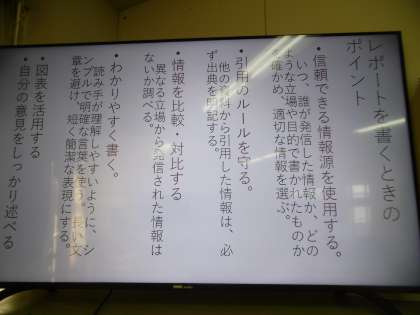 レポートを書くときの
ポイント
・信頼できる情報源を使用する。
いつ、誰が発信した情報か、どの
ような立場や目的で書かれたものか
を確かめ、適切な情報を選ぶ。
・引用のルールを守る。
他の資料から引用した情報は、必
ず出典を明記する。
・情報を比較・対比する
異なる立場から発信された情報は
ないか調べる。
・わかりやすく書く。
読み手が理解しやすいように、シ
ンプルで明確な言葉を使う。長い文
章を避け、短く簡潔な表現にする。
・図表を活用する
・自分の意見をしっかり述べる